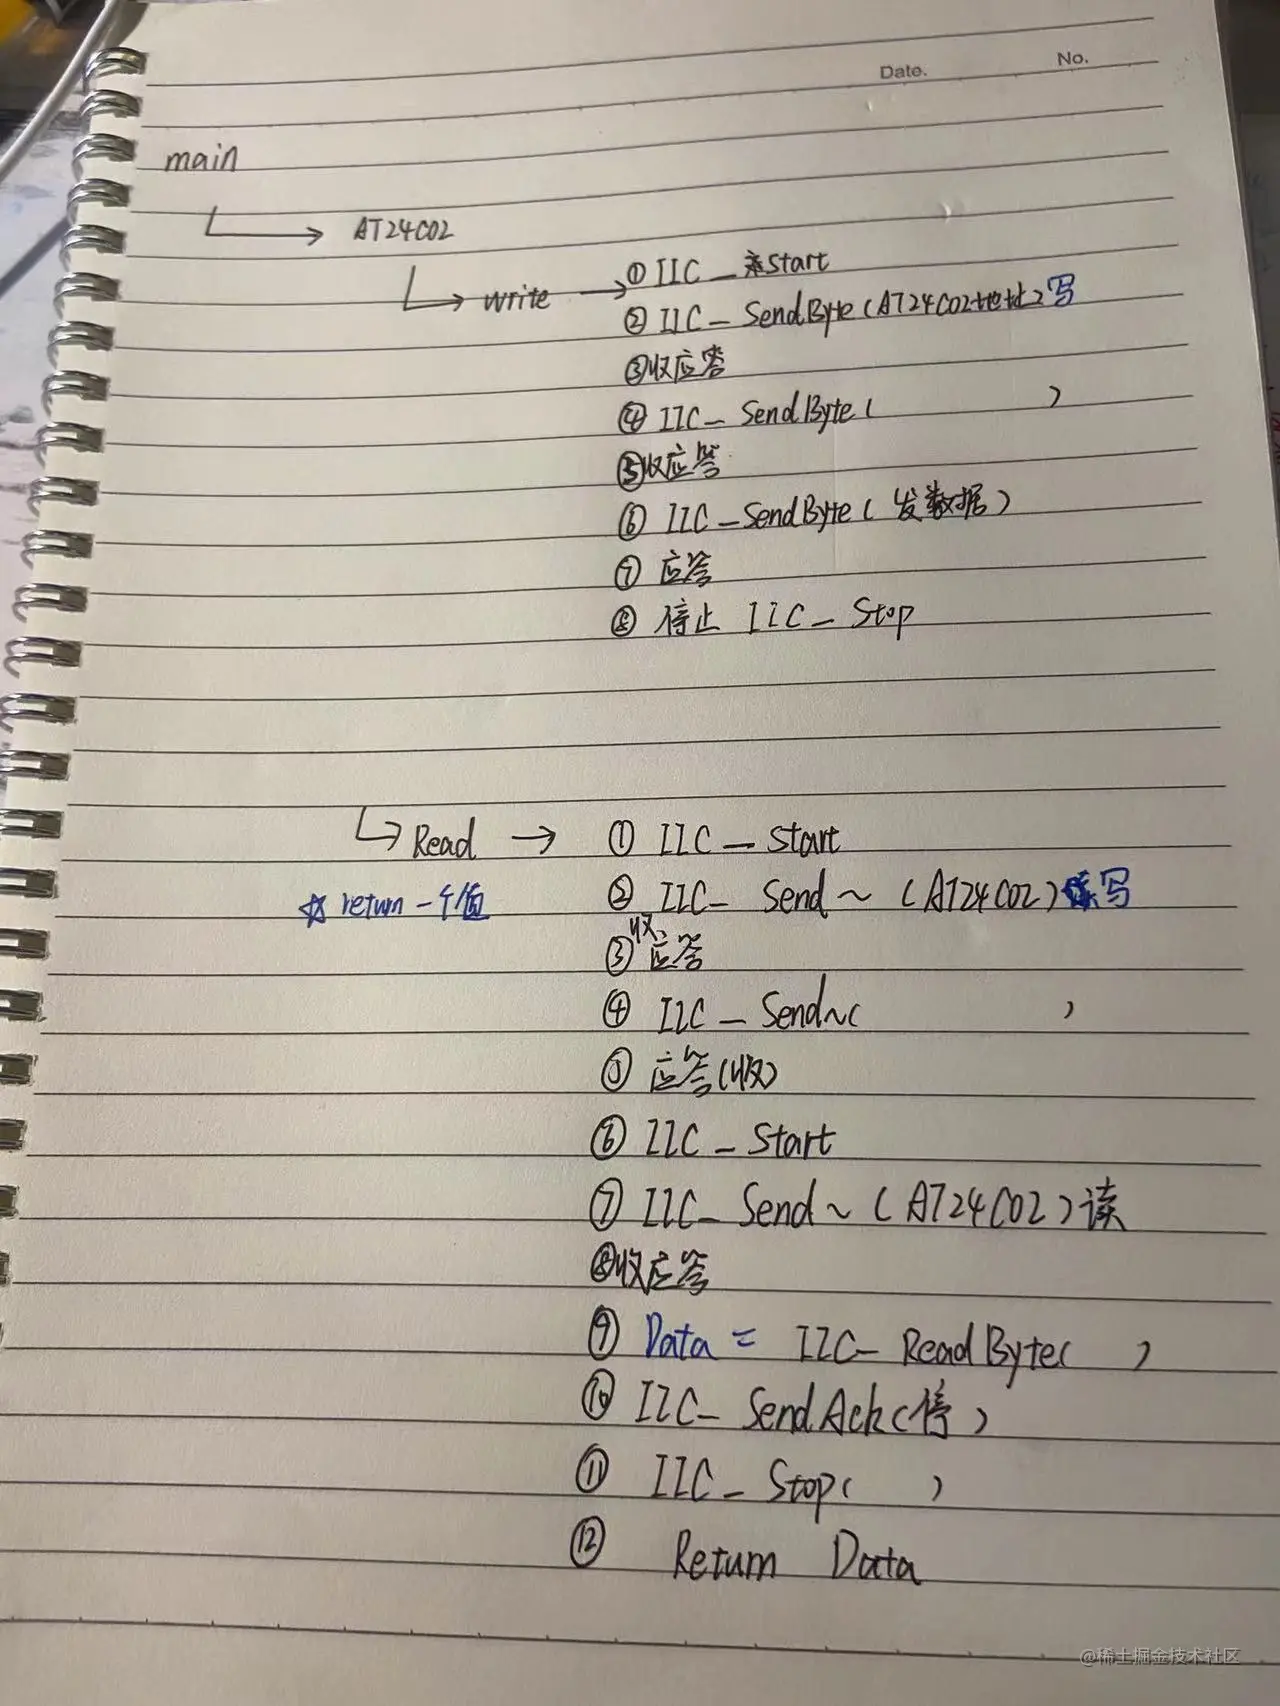 Date. No.
main
AT24C02
write
① IIC_Start
② IIC_SendByte(AT24C02地址)写
③收应答
④ IIC_SendByte( )
⑤收应答
⑥ IIC_SendByte(发数据)
⑦ 应答
⑧ 停止 IIC_Stop
Read
☆ return一个值
① IIC_Start
② IIC_Send~(AT24C02)写
③收应答
④ IIC_Send~( )
⑤ 应答(收)
⑥ IIC_Start
⑦ IIC_Send~(AT24C02)读
⑧收应答
⑨ Data = IIC_ReadByte( )
⑩ IIC_SendAck(停)
⑪ IIC_Stop( )
⑫ Return Data
@稀土掘金技术社区